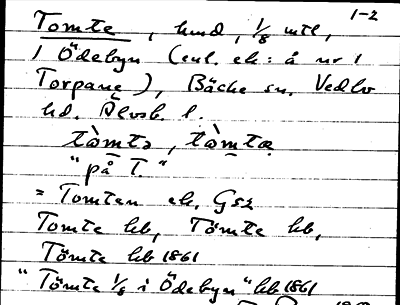 1-2
Tomte, hmd, 1/8 mtl,
i Ödebyn (enl. ek: å nr 1
Torpane), Bäcke sn, Vedbo
hd. Älvsb. l.
tòmtə, tòmtæ
"på T."
= Tomten ek. Gsz
Tomte kb, Tömte kb,
Tömte kb 1861
"Tömte 1/8 i Ödebyn" kb 1861